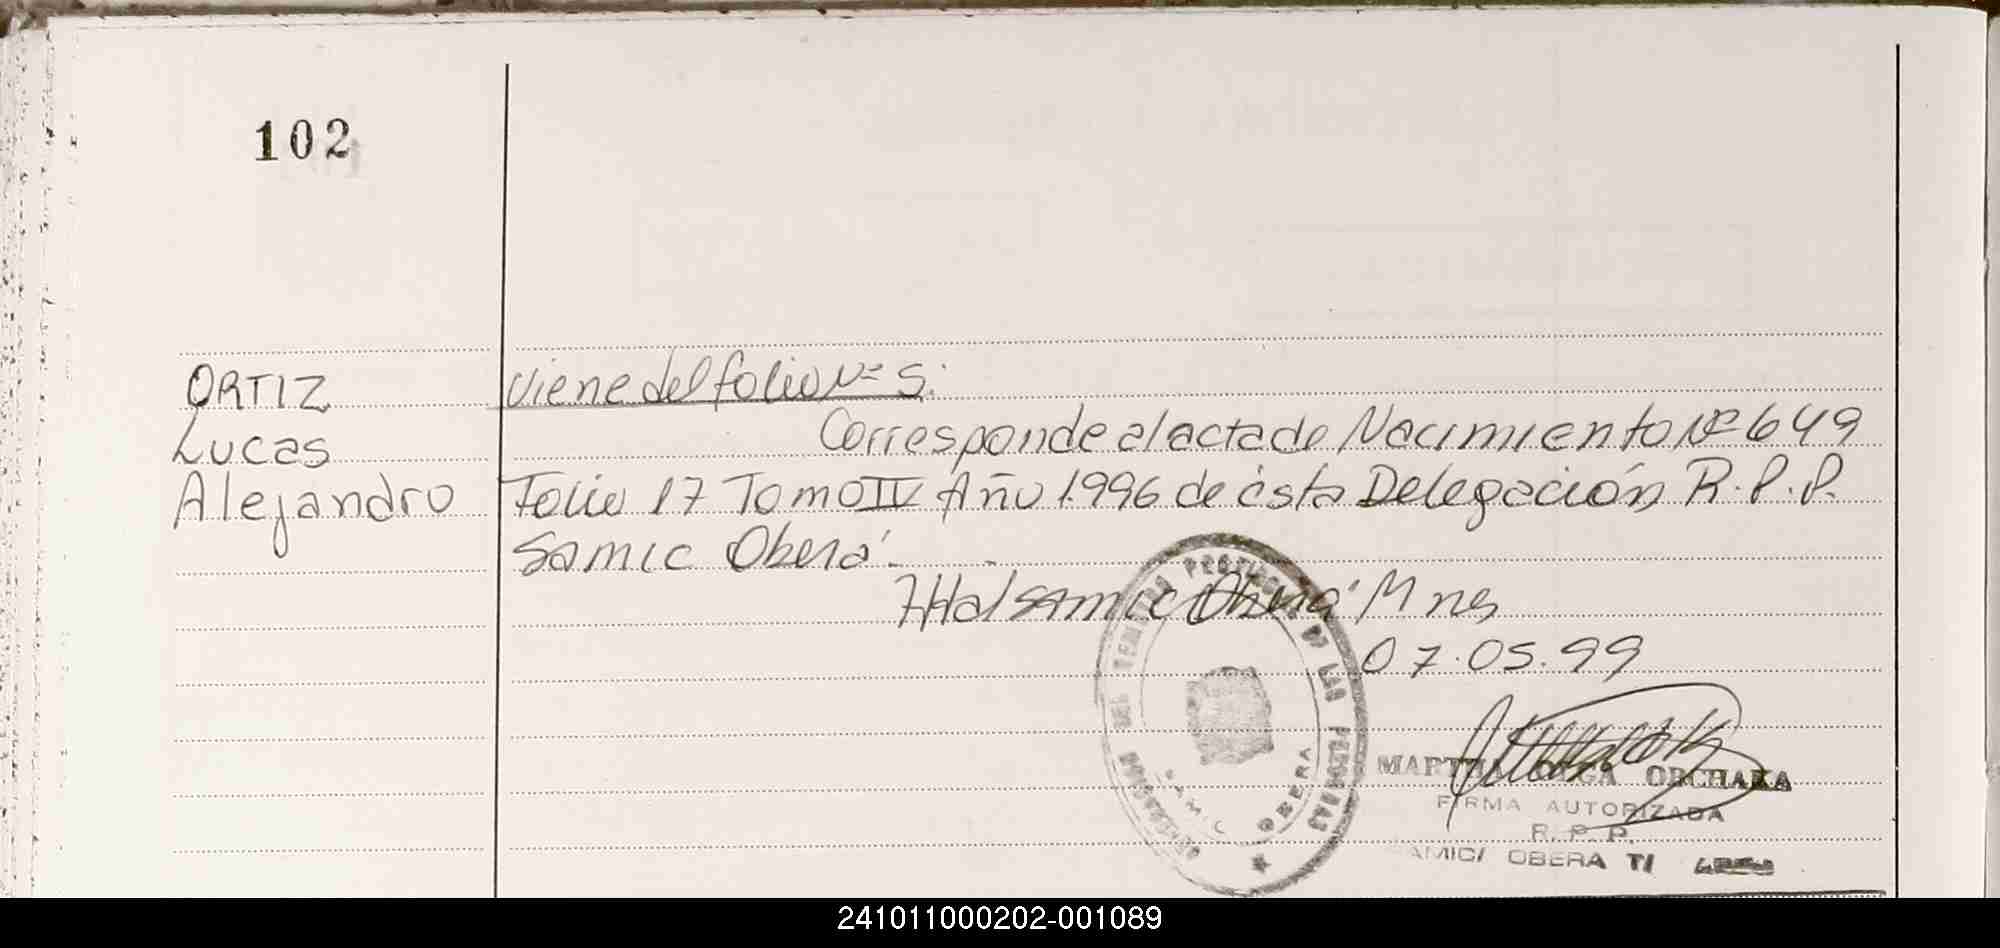 102
ORTIZ
Lucas
Alejandro
viene del folio Nº 5.
Corresponde al acta de Nacimiento Nº 649
Folio 17 Tomo IV Año 1.996 de ésta Delegación R.P.P.
Samic Oberá.
Htal samic Oberá Mnes
07.05.99
PROVINCIAL DE LAS PERSONAS
SAMIC OBERA
MARTHA OLGA ORCHAKA
FIRMA AUTORIZADA
R. P. P.
SAMIC/ OBERA
241011000202-001089